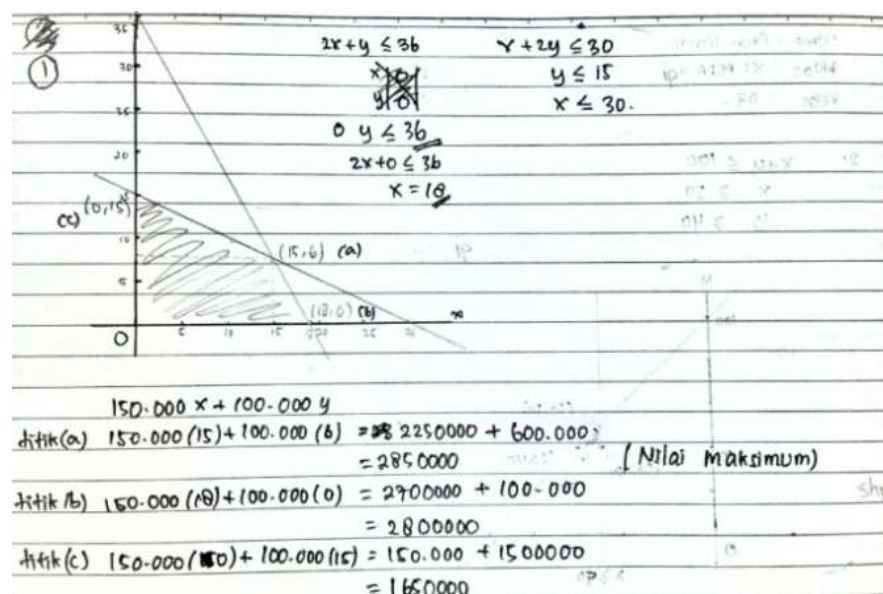 1
2x+y ≤ 36
x+2y ≤ 30
y ≤ 15
x ≤ 30.
0 y ≤ 36
2x+0 ≤ 36
x = 18
36
30
25
20
15
10
5
(c) (0,15)
(15,6) (a)
(18,0) (b)
x
0
5 10 15 20 25 30
150.000 x + 100.000 y
titik (a) 150.000 (15) + 100.000 (6) = 2250000 + 600.000
= 2850000 (Nilai Maksimum)
titik (b) 150.000 (18) + 100.000 (0) = 2700000 + 100.000
= 2800000
titik (c) 150.000 (0) + 100.000 (15) = 150.000 + 1500000
= 1650000